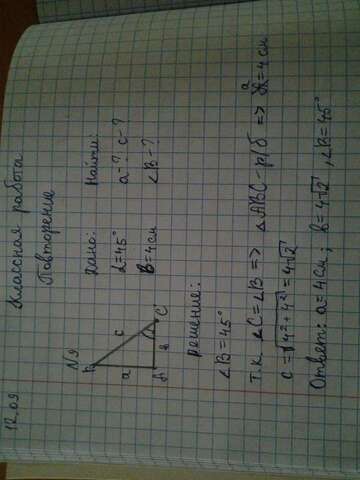 12.09
Классная работа
Повторение
№9
Дано: Найти:
α=45° a-? c-?
b=4см ∠B-?
B
c
a
A b C
Решение:
∠B=45°
т.к. ∠C=∠B => △ABC - р/б => a=4см
c=√4²+4²=4√2
Ответ: a=4см; b=4√2, ∠B=45°